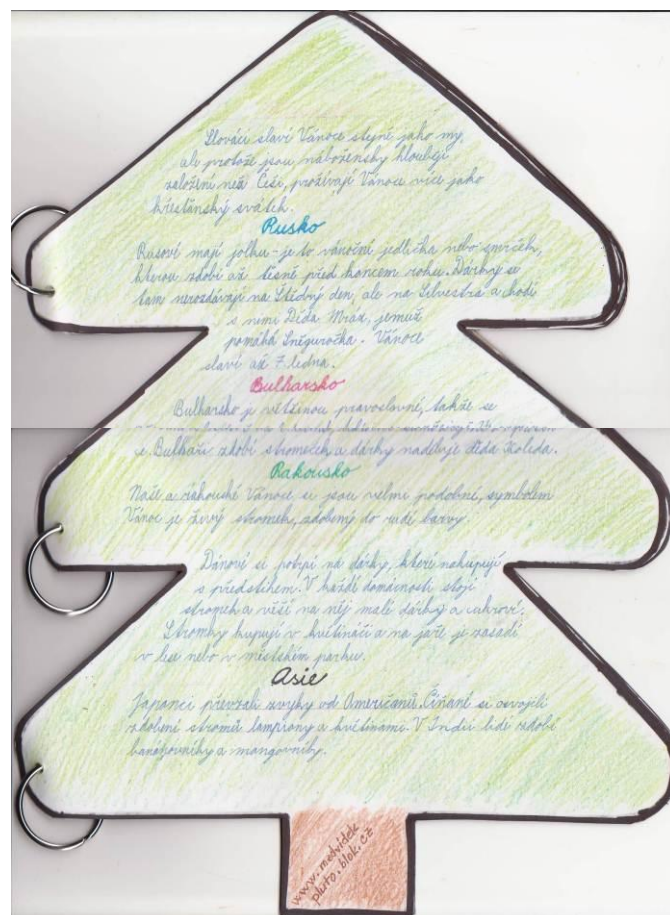 Slováci slaví Vánoce stejně jako my,
ale protože jsou nábožensky hlouběji
založení než Češi, prožívají Vánoce více jako
křesťanský svátek.
Rusko
Rusové mají jolku - je to vánoční jedlička nebo smrček,
kterou zdobí až těsně před koncem roku. Dárky se
tam nerozdávají na Štědrý den, ale na Silvestra a chodí
s nimi Děda Mráz, jemuž
pomáhá Sněguročka. Vánoce
slaví až 7. ledna.
Bulharsko
Bulharsko je většinou pravoslavné, takže se
Bulhaři zdobí stromeček a dárky naděluje děda Koleda.
Rakousko
Naše a rakouské Vánoce si jsou velmi podobné, symbolem
Vánoc je živý stromek, zdobený do rudé barvy.
Dánové si potrpí na dárky, které nakupují
s předstihem. V každé domácnosti stojí
stromek a věší na něj malé dárky a cukroví.
Stromky kupují v květináči a na jaře je zasadí
v lese nebo v městském parku.
Asie
Japonci převzali zvyky od Američanů. Číňané si osvojili
zdobení stromů lampiony a květinami. V Indii lidé zdobí
banánovníky a mangovníky.
www.medvidek
pluto.blok.cz